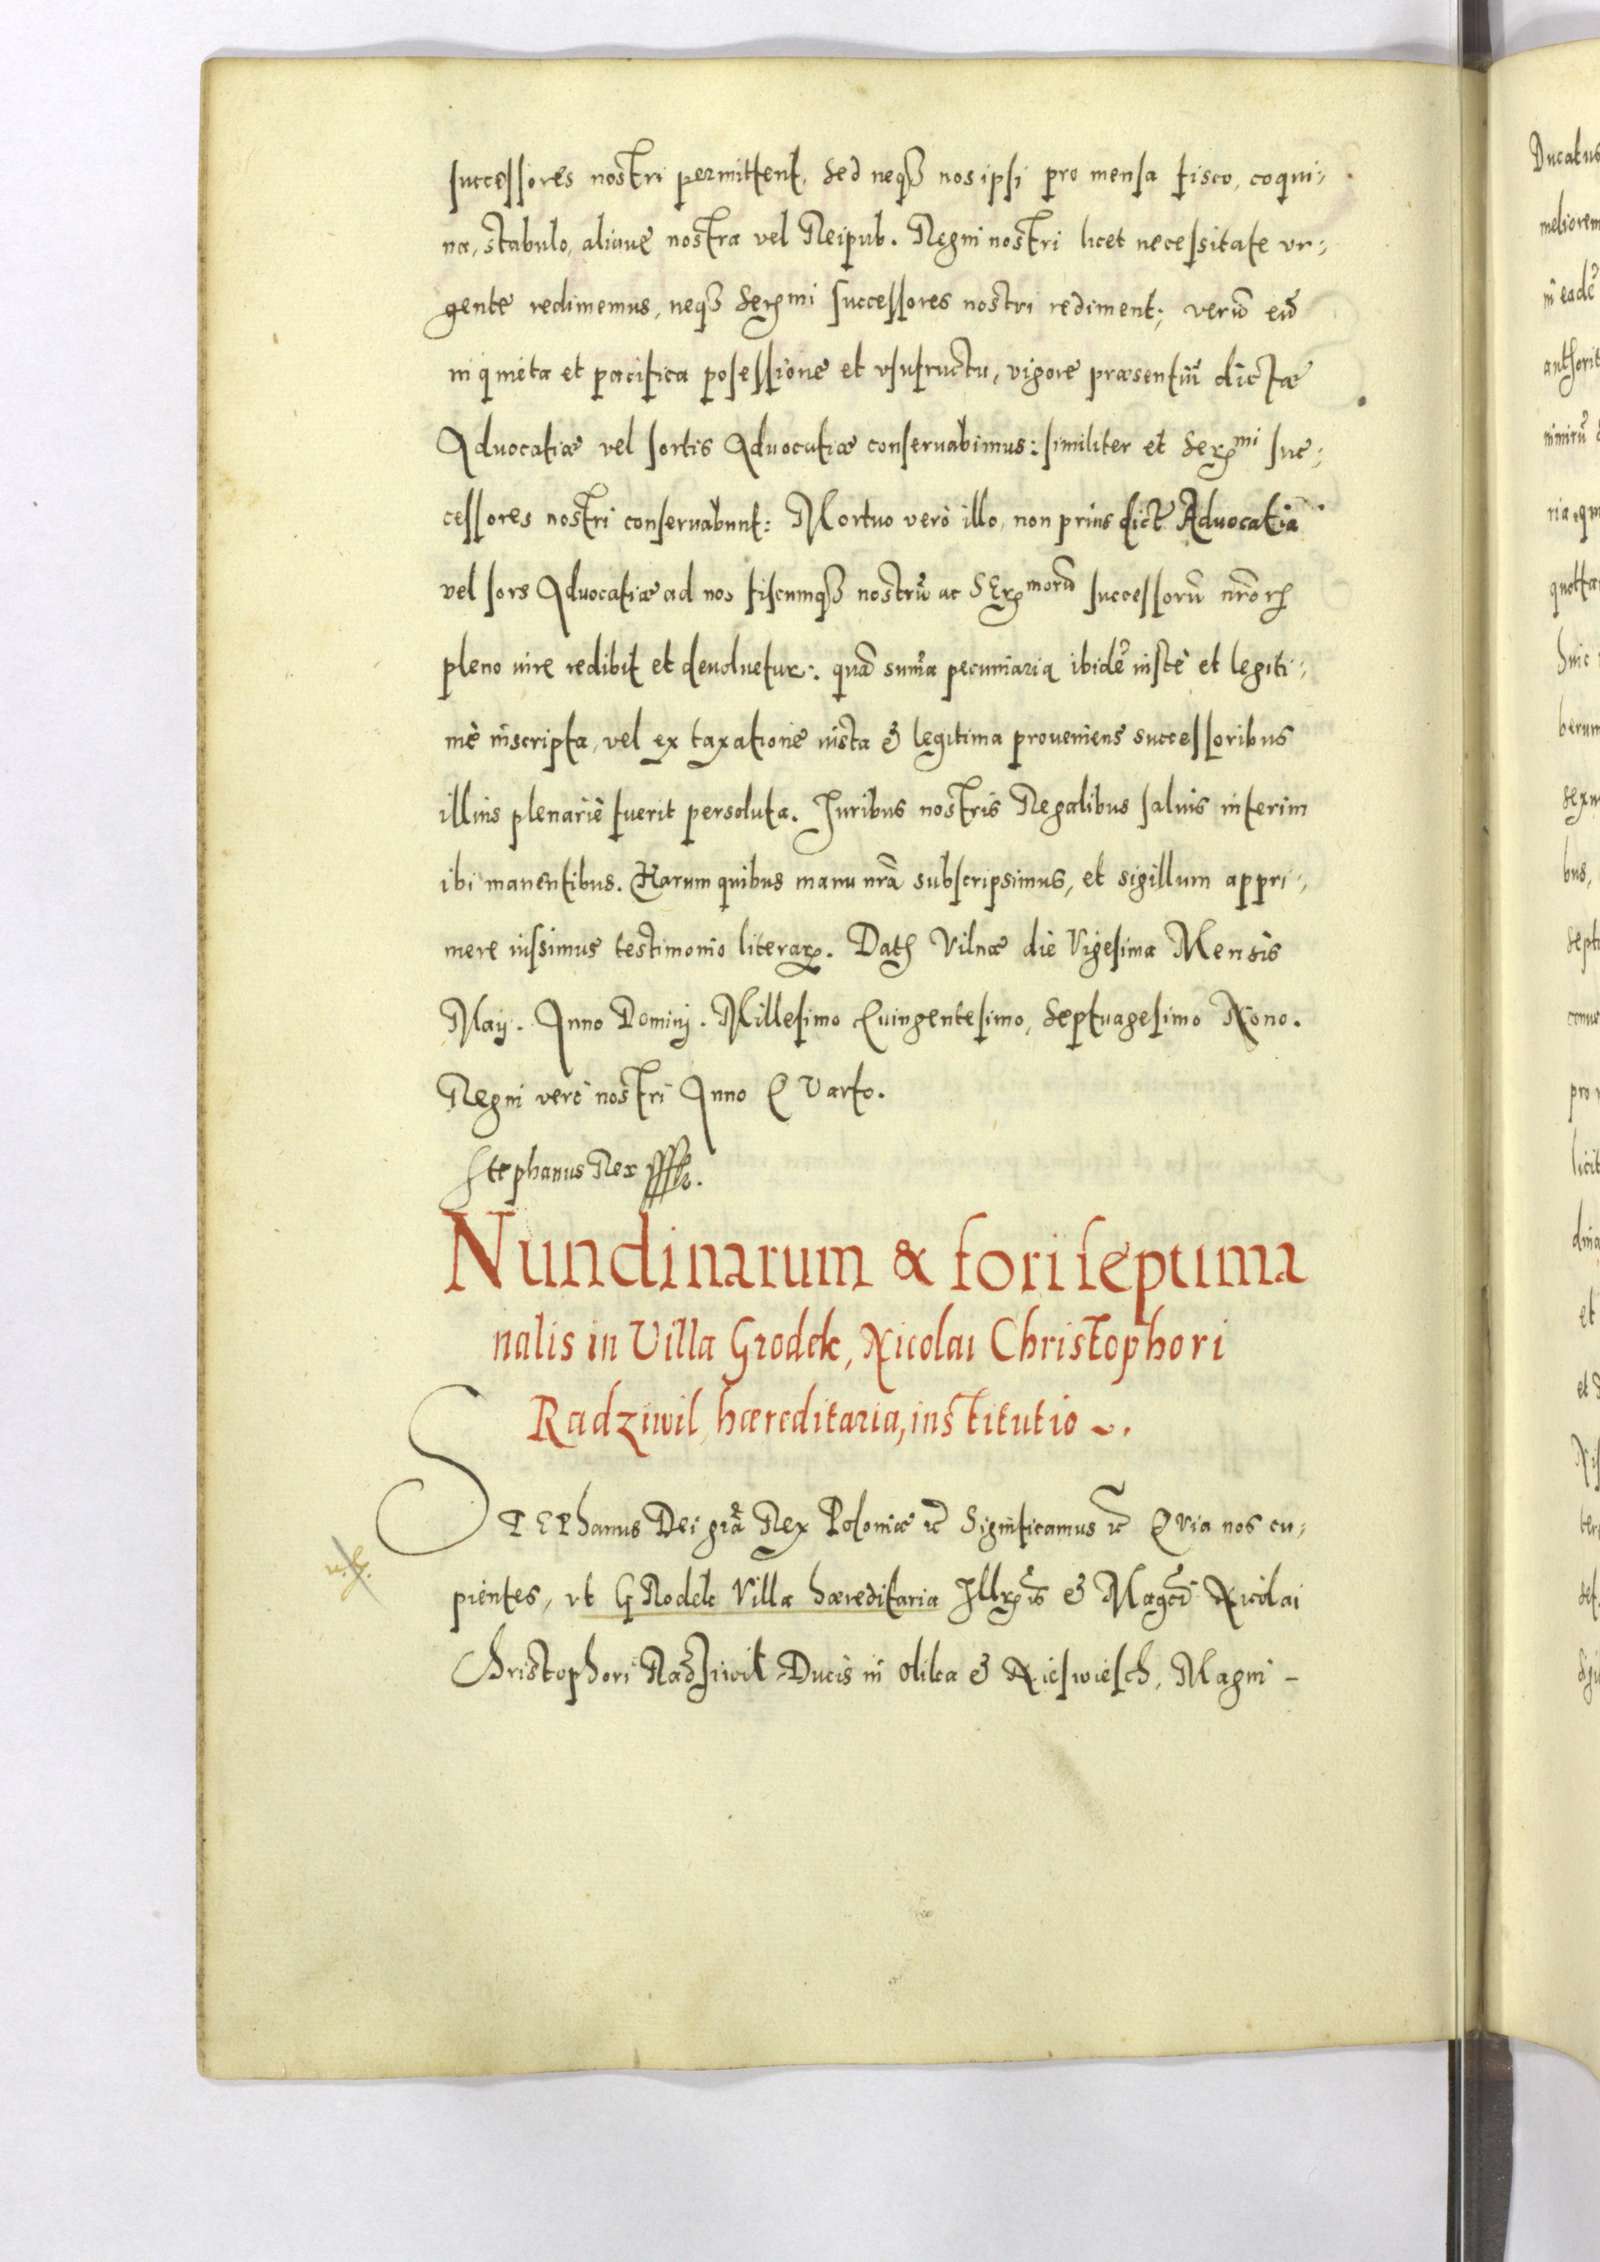 successores nostri permittent. Sed neqȝ nos ipsi pro mensa fisco, coqui-
na, stabulo, aliaue nostra vel Reipub. Regni nostri licet necessitate vr-
gente redimemus, neqȝ Serꝫmi successores nostri rediment; verū eū
in quieta et pacifica posessione et vsufructu, vigore præsentiū dictæ
Aduocatiæ vel sortis Aduocatiæ conseruabimus: similiter et Serꝫmi suc-
cessores nostri conseruabunt: Mortuo verò illo, non prius dict Aduocatia
vel sors Aduocatiæ ad nos fiscumqȝ nostrū ac SErꝫmorū successorū nr̄orꝫ
pleno iure redibit et deuoluetur: quā sum̄a pecuniaria ibidē iustè et legiti-
mè inscripta, vel ex taxatione iusta & legitima proueniens successoribus
illius plenariè fuerit persoluta. Iuribus nostris Regalibus saluis interim
ibi manentibus. Harum quibus manu nr̄a subscripsimus, et sigillum appri-
mere iussimus testimonio literarꝫ. Datꝫ Vilnæ die Vigesima Mensis
Maij. Anno Dominj. Millesimo Quingentesimo, Septuagesimo Nono.
Regni verò nostri Anno QVarto.
Stephanus Rex
Nundinarum & fori septima
nalis in Villa Grodek, Nicolai Christophori
Radziwil, hæreditaria, institutio
STEPhanus Dei gr̄a Rex Poloniæ ꝛc Significamus ꝛc QVia nos cu-
pientes, vt GRodek Villa hæreditaria Illrꝫis & Magcī Nicolai
Christophori Radziwil Ducis in Olika & Nieswiesch, Magni -
Ducatus
meliorem
in eadē